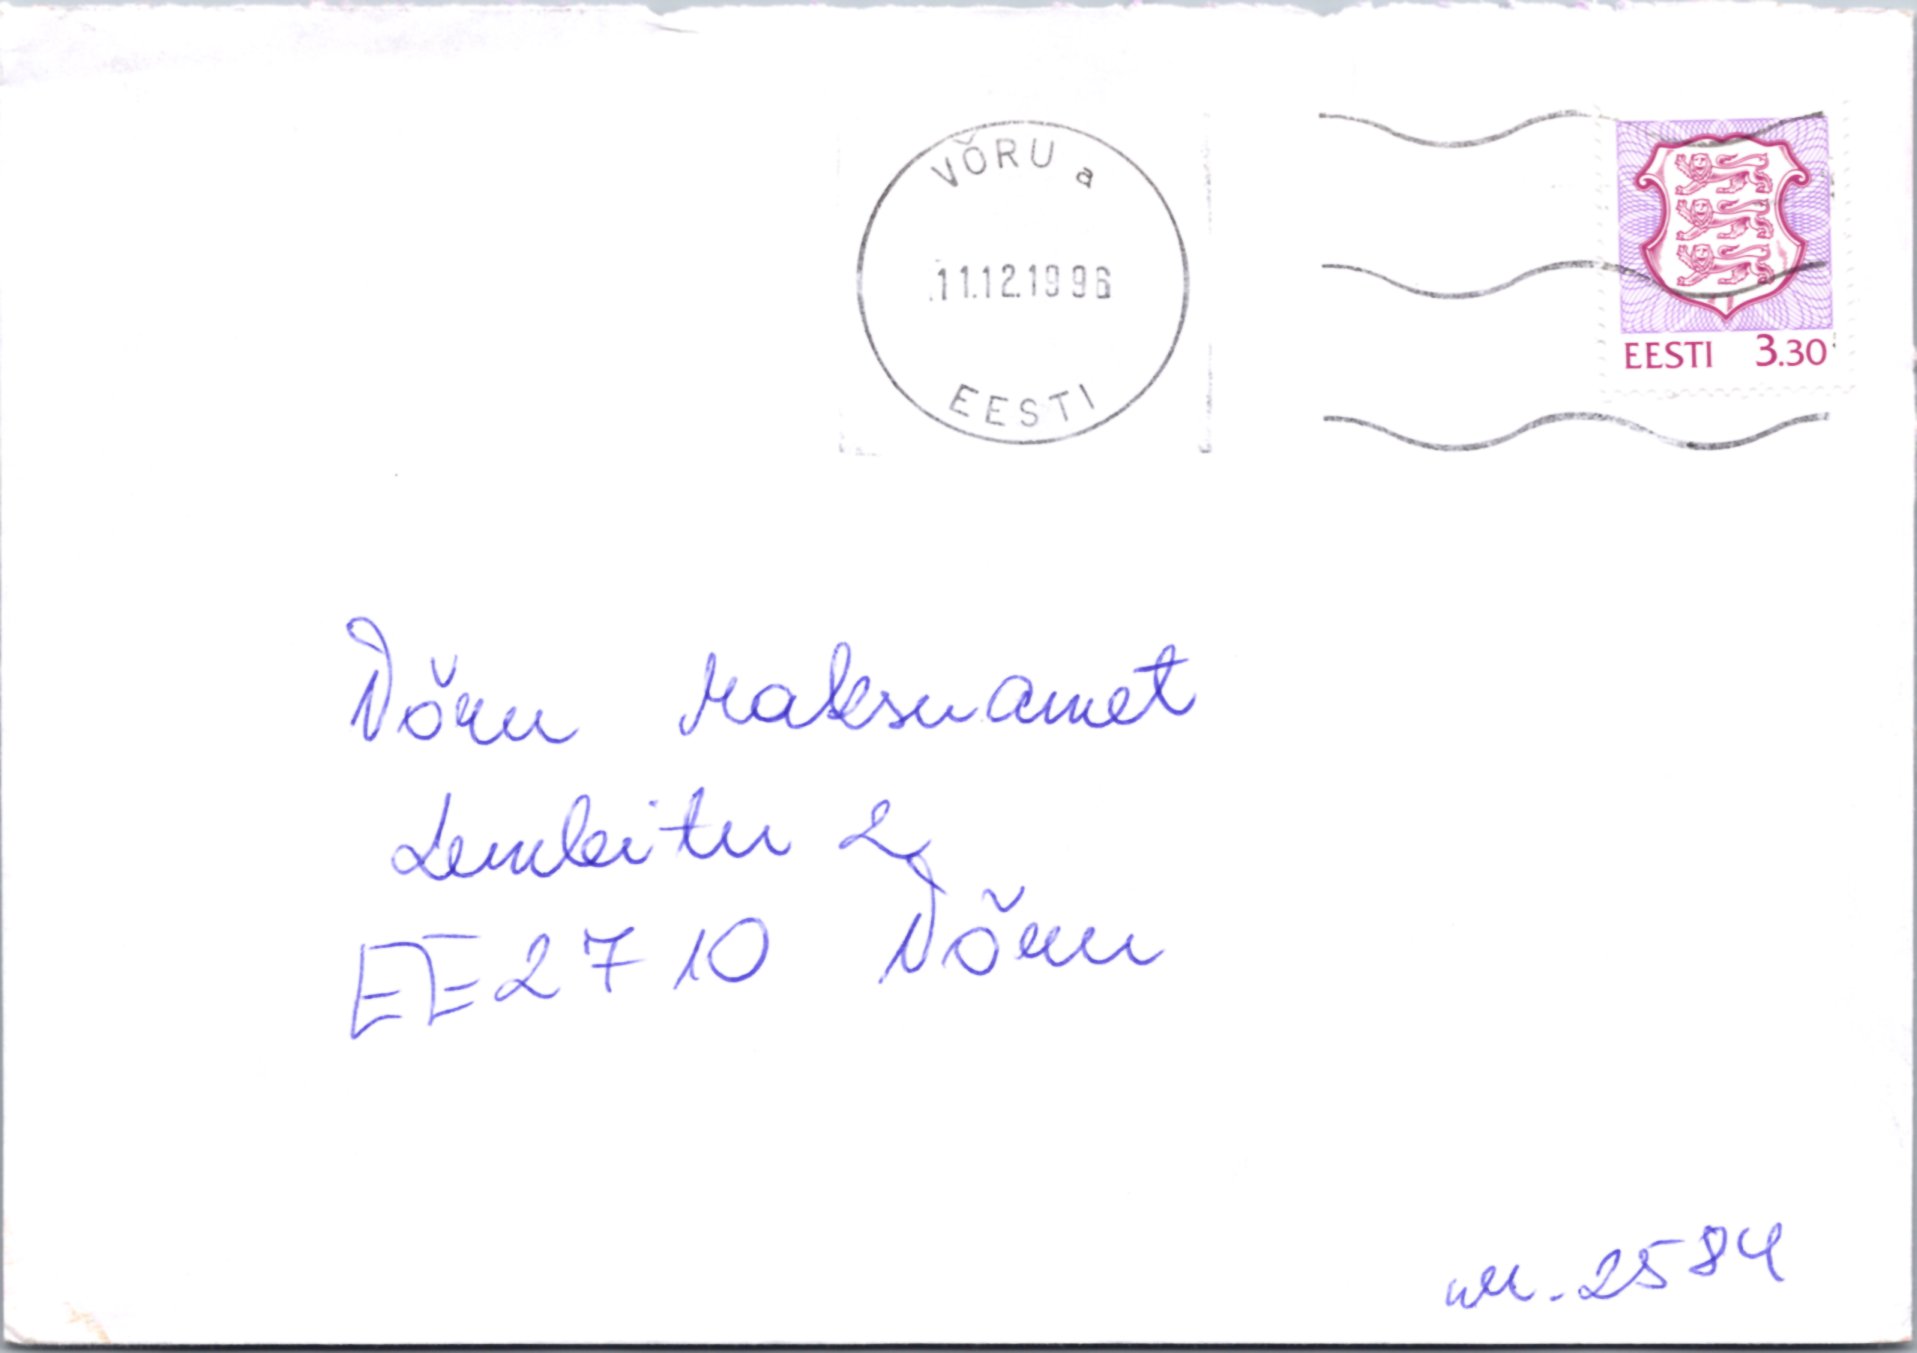 VÕRU a
11.12.1996
EESTI
EESTI 3.30
Võru Maksuamet
Lembitu 2
EE2710 Võru
nr. 2584